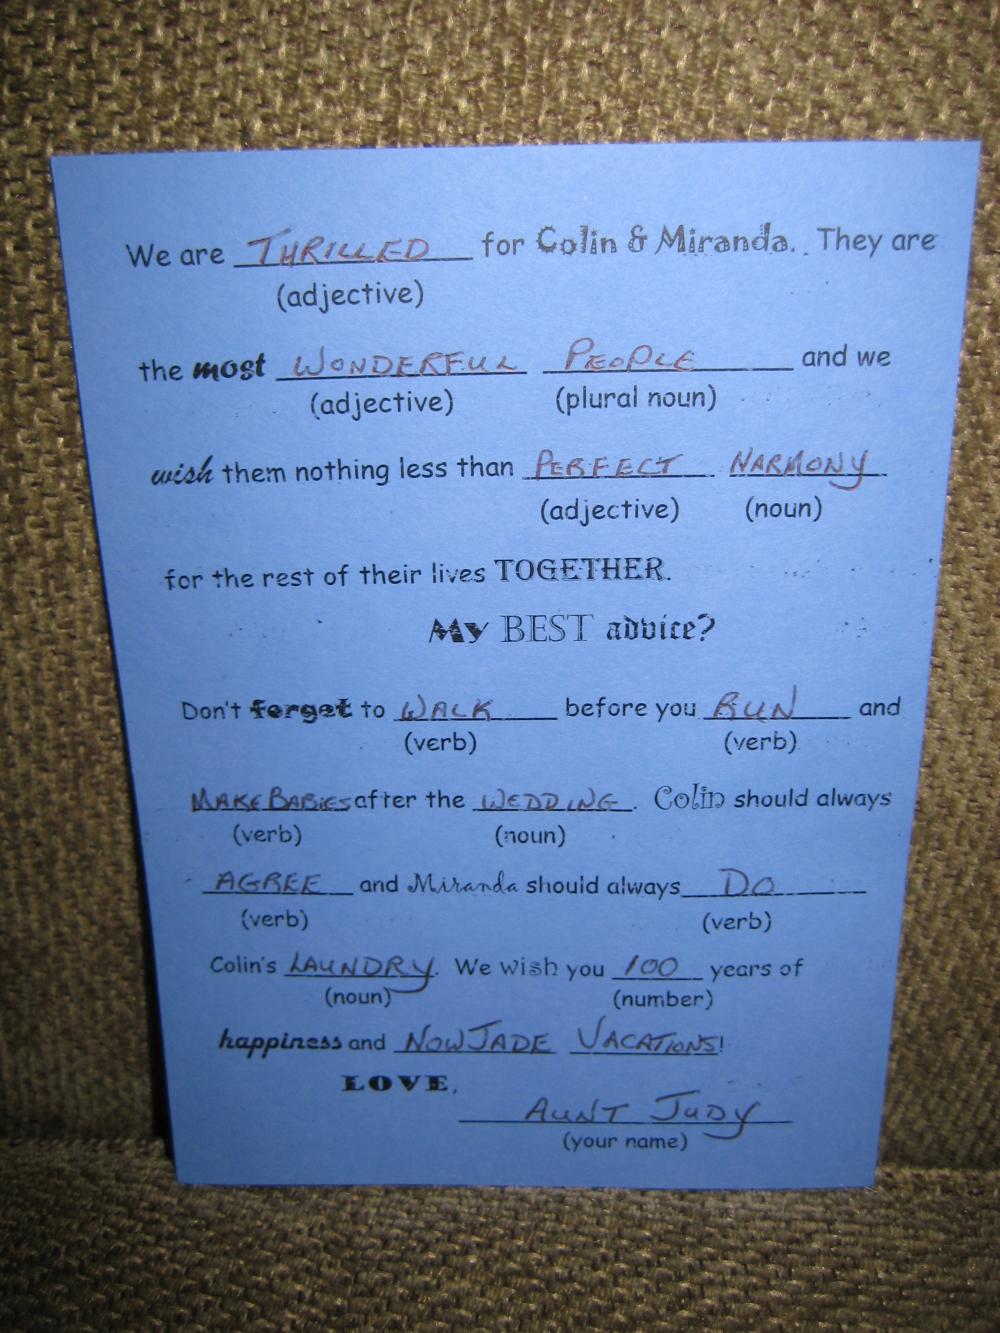 We are THRILLED for Colin & Miranda. They are
(adjective)
the most WONDERFUL PEOPLE and we
(adjective) (plural noun)
wish them nothing less than PERFECT HARMONY
(adjective) (noun)
for the rest of their lives TOGETHER.
My BEST advice?
Don't forget to WALK before you RUN and
(verb) (verb)
MAKE BABIES after the WEDDING. Colin should always
(verb) (noun)
AGREE and Miranda should always DO
(verb) (verb)
Colin's LAUNDRY. We wish you 100 years of
(noun) (number)
happiness and VACATIONS!
LOVE,
AUNT JUDY
(your name)